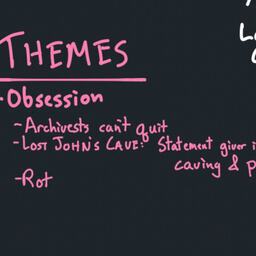 THEMES
·Obsession
-Archivests can't quit
-LOST JOHN'S CAVE: Statement giver i
caving & p
-Rot